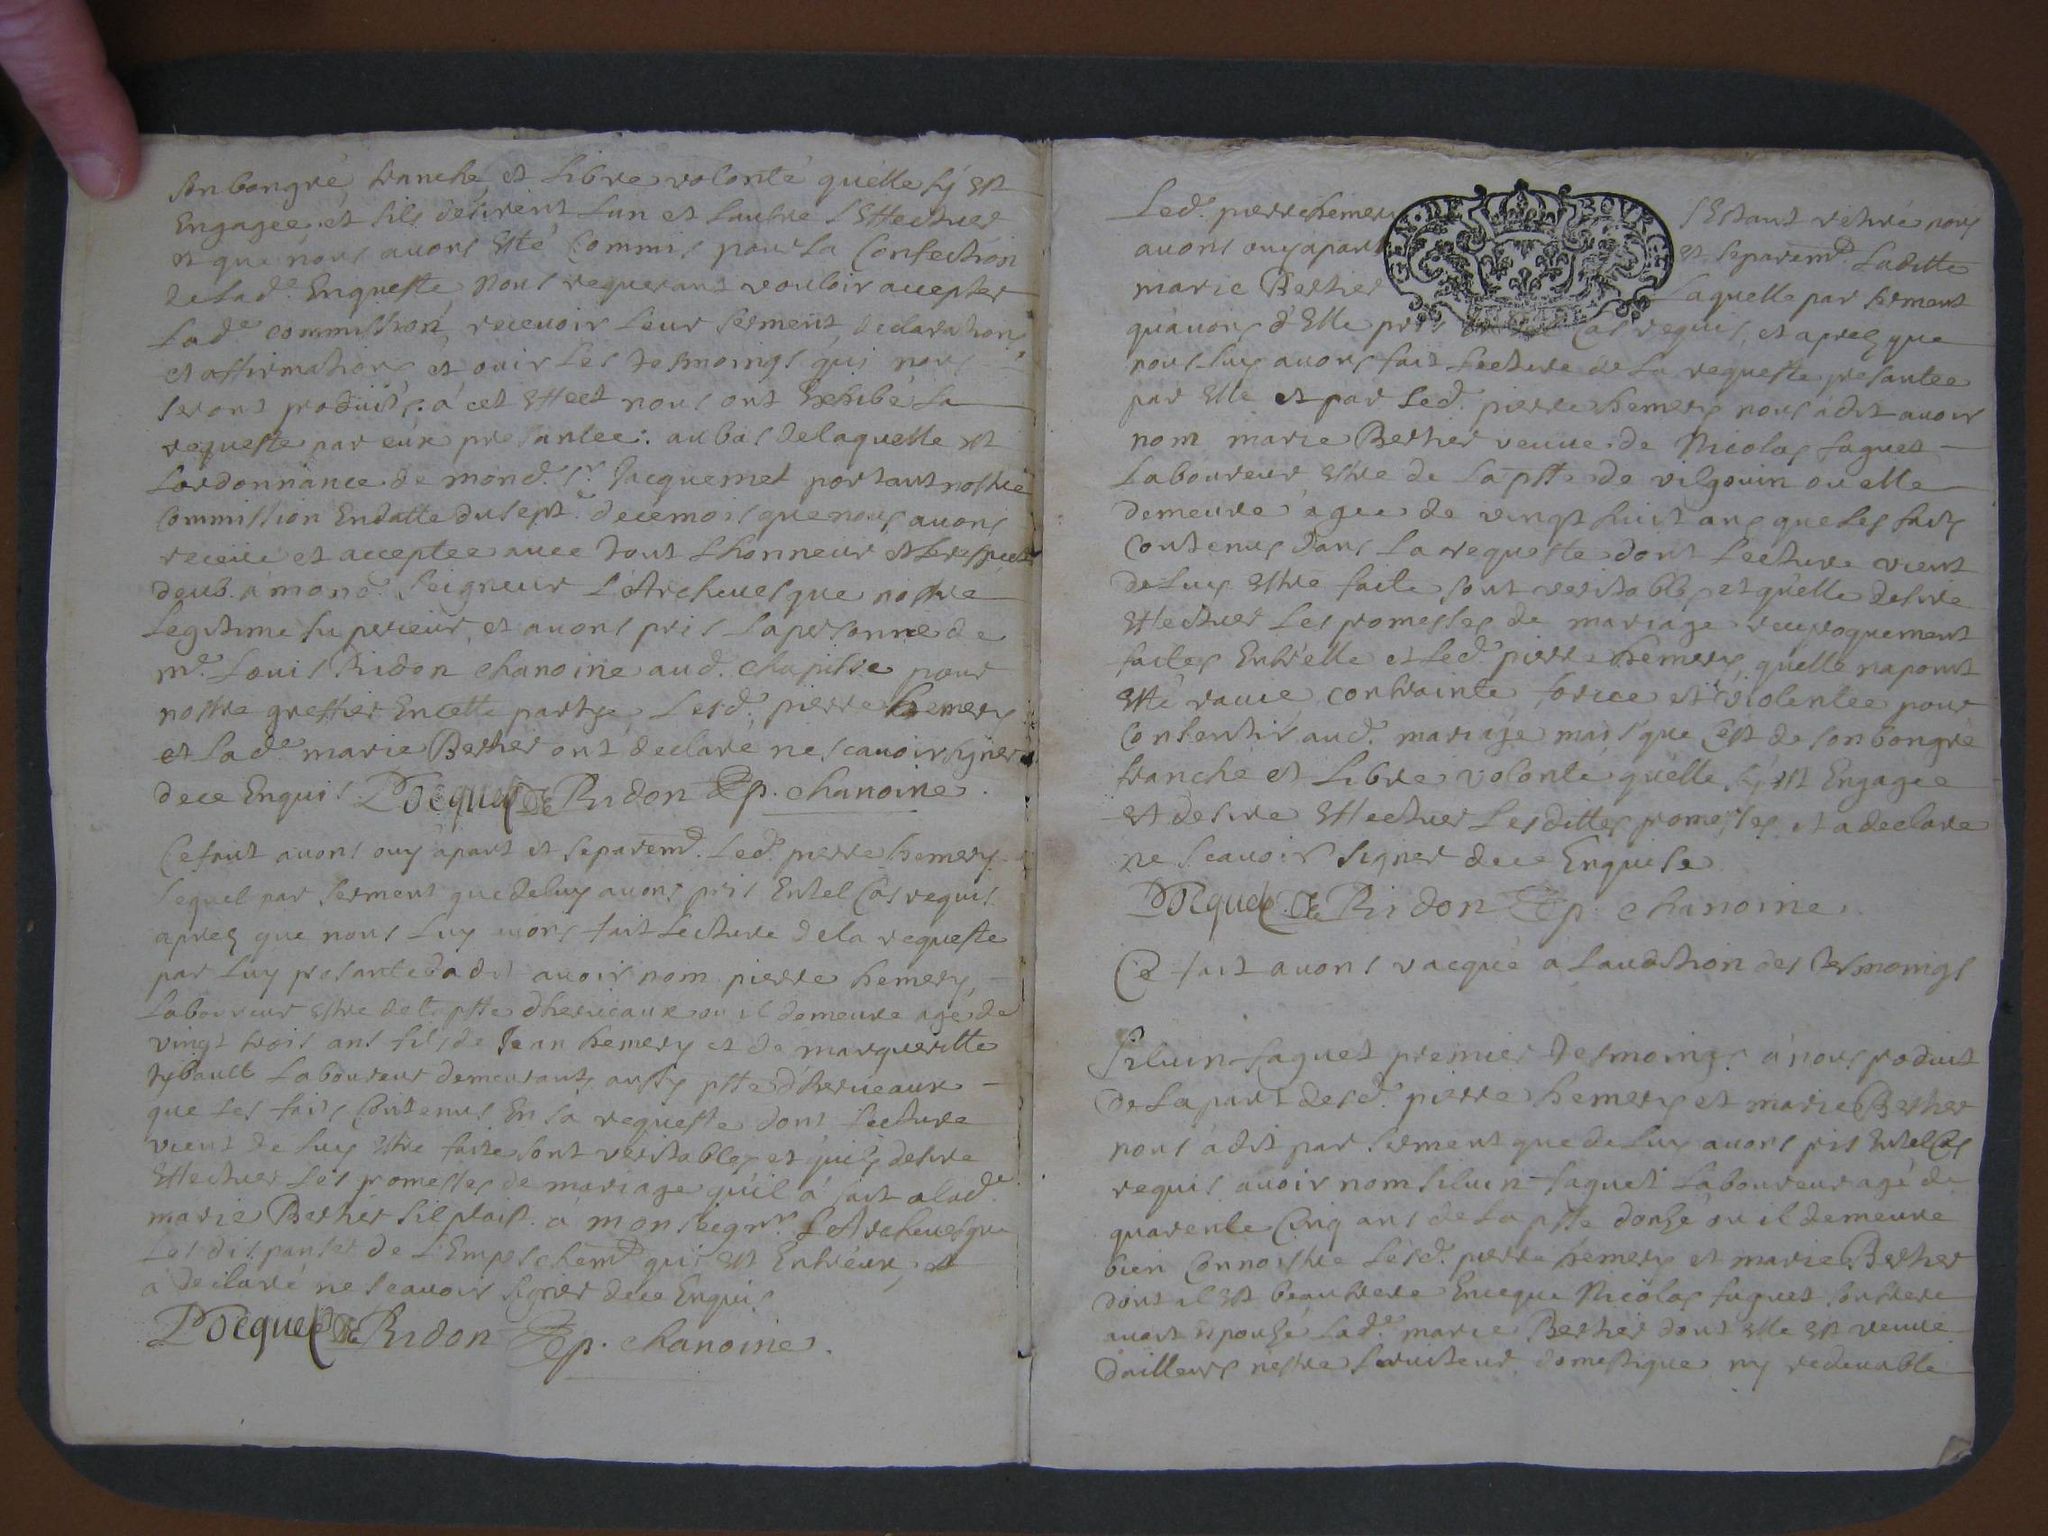 son bon gré franche et libre volonté quélle sÿ est
Engagée et sils desirent lun et lautre l'Effectuer
et que nous avons esté Commis pour la Confection
de lad.e Enqueste Nous requerans vouloir accepter
lad.e commission, recevoir leur serment declarations
et affirmations et ouir les tesmoings qui nous
seront produits. a cet Effect nous ont Exhibé la
requeste par eux presantee: au bas delaquelle est
lordonnance de mond. sr. Jacquemet portant nostre
Commission En datte du sept.e de ce mois que nous avons
receüe et acceptee avec tout lhonneur et le respect
deub a mond. Seigneur l'Archevesque nostre
legitime superieur, et avons pris la personne de
m.e Louis Ridon chanoine aud. chapitre pour
nostre greffier En cette partye Lesd. pierre hemery
et lad.e marie Berher ont declaré ne scavoir signer
de ce Enquis Ridon p. chanoine.
Ce fait avons ouy apart et separem.t led. pierre hemery
lequel par serment que de luy avons pris En tel Cas requis
apres que nous luy avons fait lecture de la requeste
par luy presantee a dit avoir nom pierre hemery,
laboureur estre de la psse dherueaux ou il demeure agé de
vingt trois ans fils de Jean hemery et de margueritte
tybault laboureur demeurant aussy psse d'herueaux
que les faits Contenus En sa requeste dont lecture
vient de luy estre faite sont veritables et qu'il desire
Effectuer les promesses de mariage qu'il a fait a lad.e
marie Berher sil plaist a monseigr. l'Archevesque
les dispanser de l'Empeschem.t qui est Entréux, et
a declaré ne scavoir signer de ce Enquis
Ridon p. chanoine.
Led. pierre hemery s'Estant retiré nous
avons ouy apart et separem.t laditte
marie Berher laquelle par serment
quavons d'Elle pris Cas requis, et apres que
nous luy avons fait lecture de la requeste presantee
par Elle et par led. pierre hemery nous a dit avoir
nom marie Berher veuve de Nicolas faguet
laboureur estre de la psse de vilgouin ou elle
demeure agee de vingt huit ans que les faits
Contenus dans la requeste dont lecture vient
de luy estre faite sont veritables et quélle desire
Effectuer les promesses de mariage reciproquement
faites Entre elle et led. pierre hemery, quélle na point
esté ravie contrainte, forcee et violentée pour
Consentir aud. mariage mais que Cest de son bon gré
franche et libre volonté quélle sÿ est Engagee
et desire Effectuer lesdittes promesses, et a declaré
ne scavoir signer de ce Enquise
Ridon p. chanoine.
Ce fait avons vacqué a laudition des tesmoings
Siluin faguet premier tesmoing a nous produit
de la part desd. pierre hemery et marie Berher
nous a dit par serment que de luy avons pris En tel Cas
requis avoir nom siluin faguet laboureur agé de
quarente Cinq ans de la psse donzé ou il demeure
bien Connoistre lesd. pierre hemery et marie Berher
dont il est beau frere En ceque Nicolas faguet son frere
avoit epouzé lad.e marie Berher dont elle est veuve
dailleurs nestre serviteur domestique ny redevable